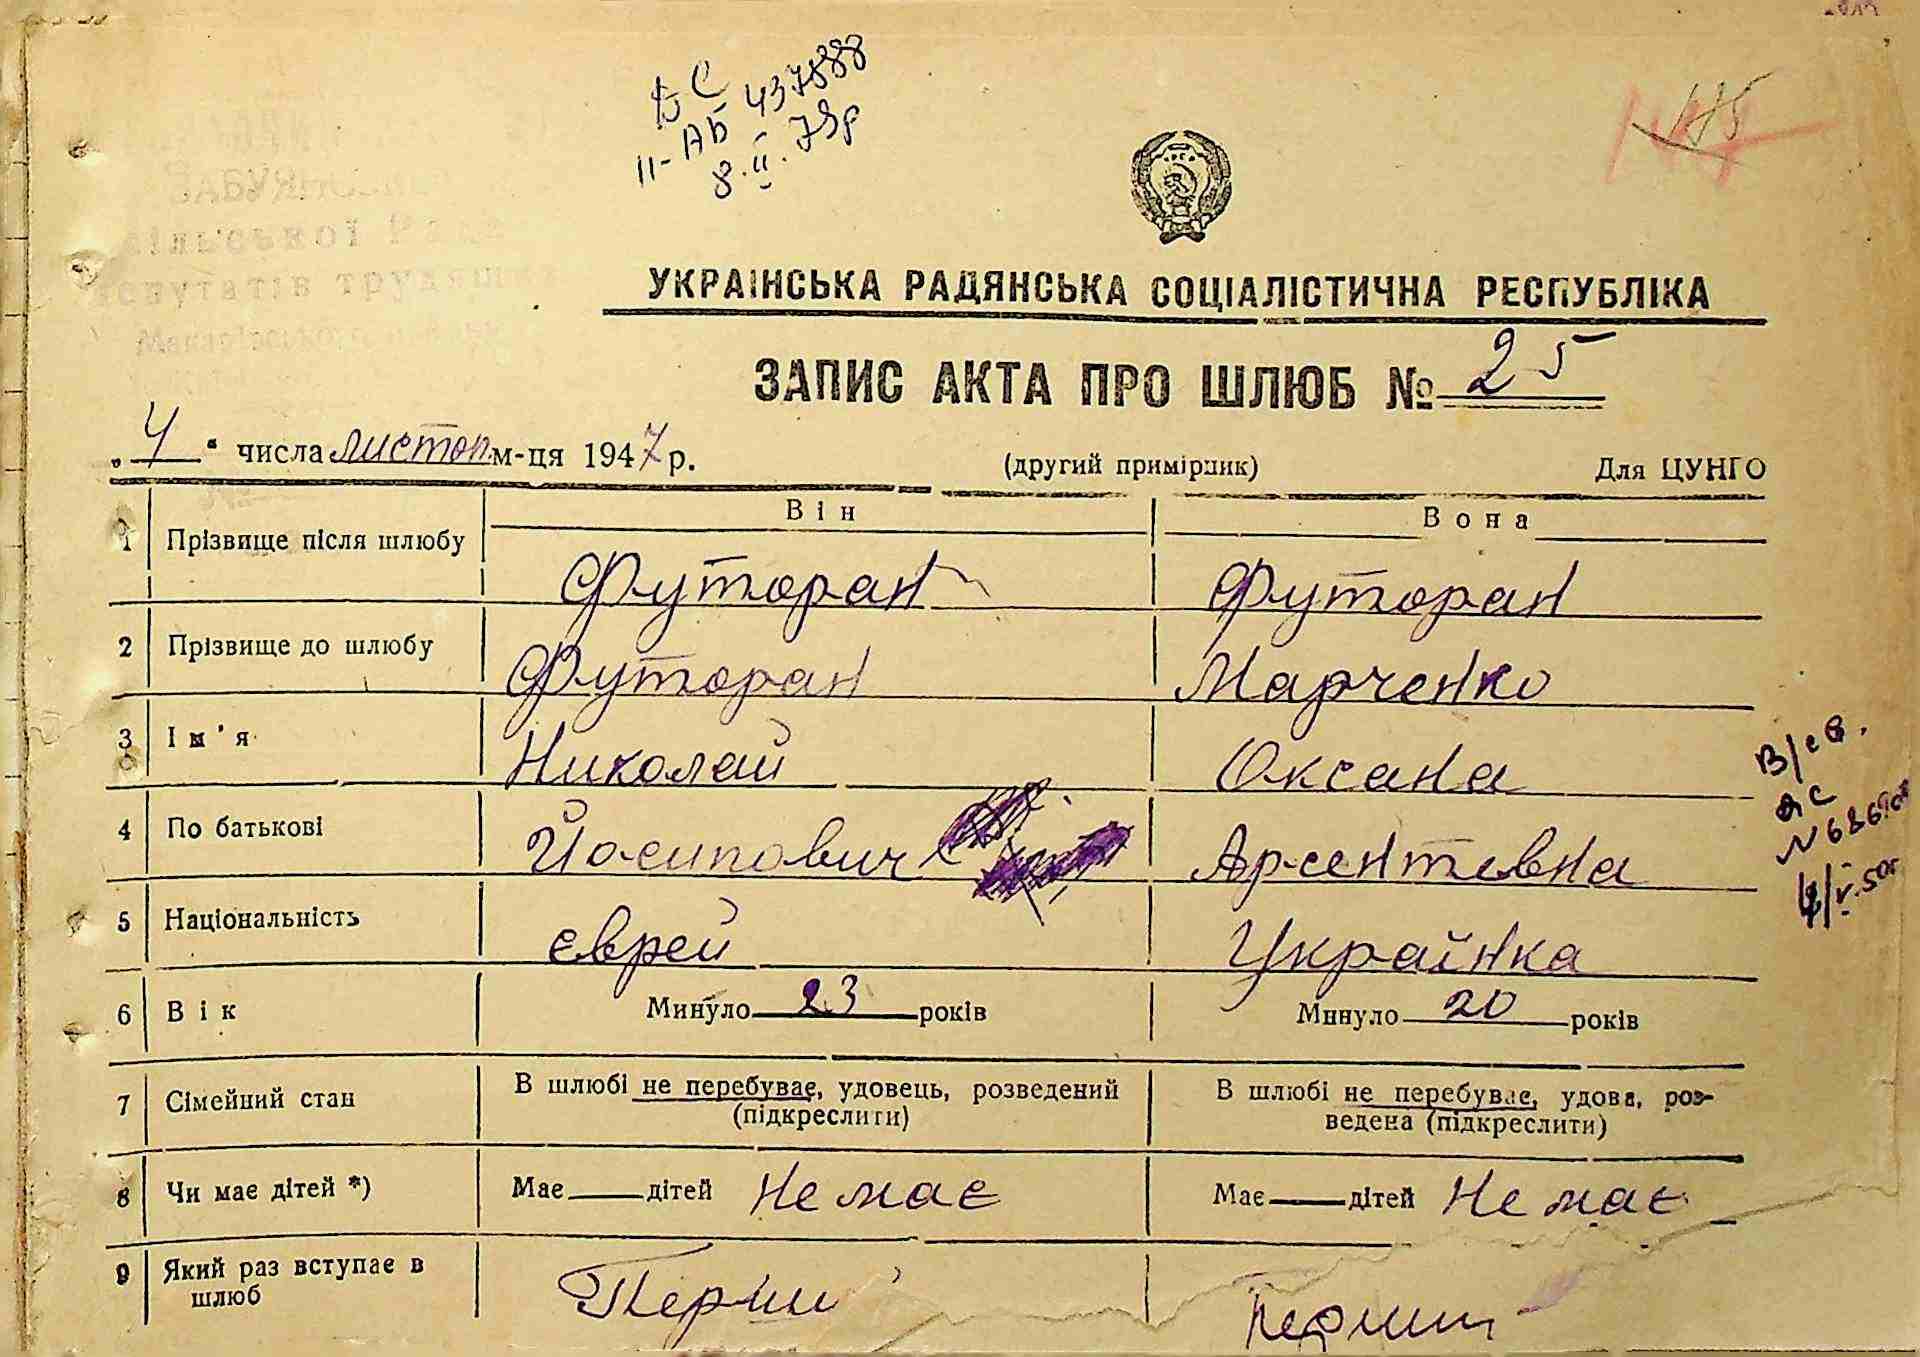 БС
II-АБ 437888
8.II.73р
175
ЗАБУЯНСЬ
сільської Ради
депутатів трудящих
Макарівського
УКРАЇНСЬКА РАДЯНСЬКА СОЦІАЛІСТИЧНА РЕСПУБЛІКА
ЗАПИС АКТА ПРО ШЛЮБ № 25
„4“ числа листоп м-ця 1947 р. (другий примірник) Для ЦУНГО
Він Вона
1 Прізвище після шлюбу Футоран Футоран
2 Прізвище до шлюбу Футоран Марченко
3 Ім'я Николай Оксана
4 По батькові Йосипович Арсентевна
5 Національність єврей Українка
6 Вік Минуло 23 років Минуло 20 років
7 Сімейний стан В шлюбі не перебуває, удовець, розведений (підкреслити) В шлюбі не перебуває, удова, роз-
ведена (підкреслити)
8 Чи має дітей *) Має дітей Не має Має дітей Не має
9 Який раз вступає в
шлюб Перший перший
В/св.
ЯС
4/V.50г